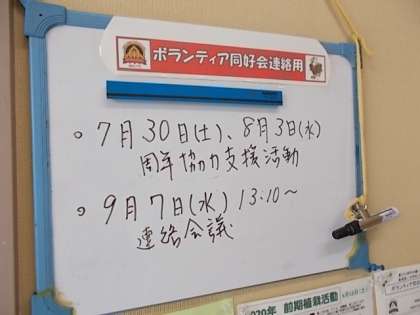 ボランティア同好会連絡用
。7月30日(土)、8月3日(水)
周年協力支援活動
。9月7日(水) 13:10~
連絡会議
前期植栽活動
ボランティア同